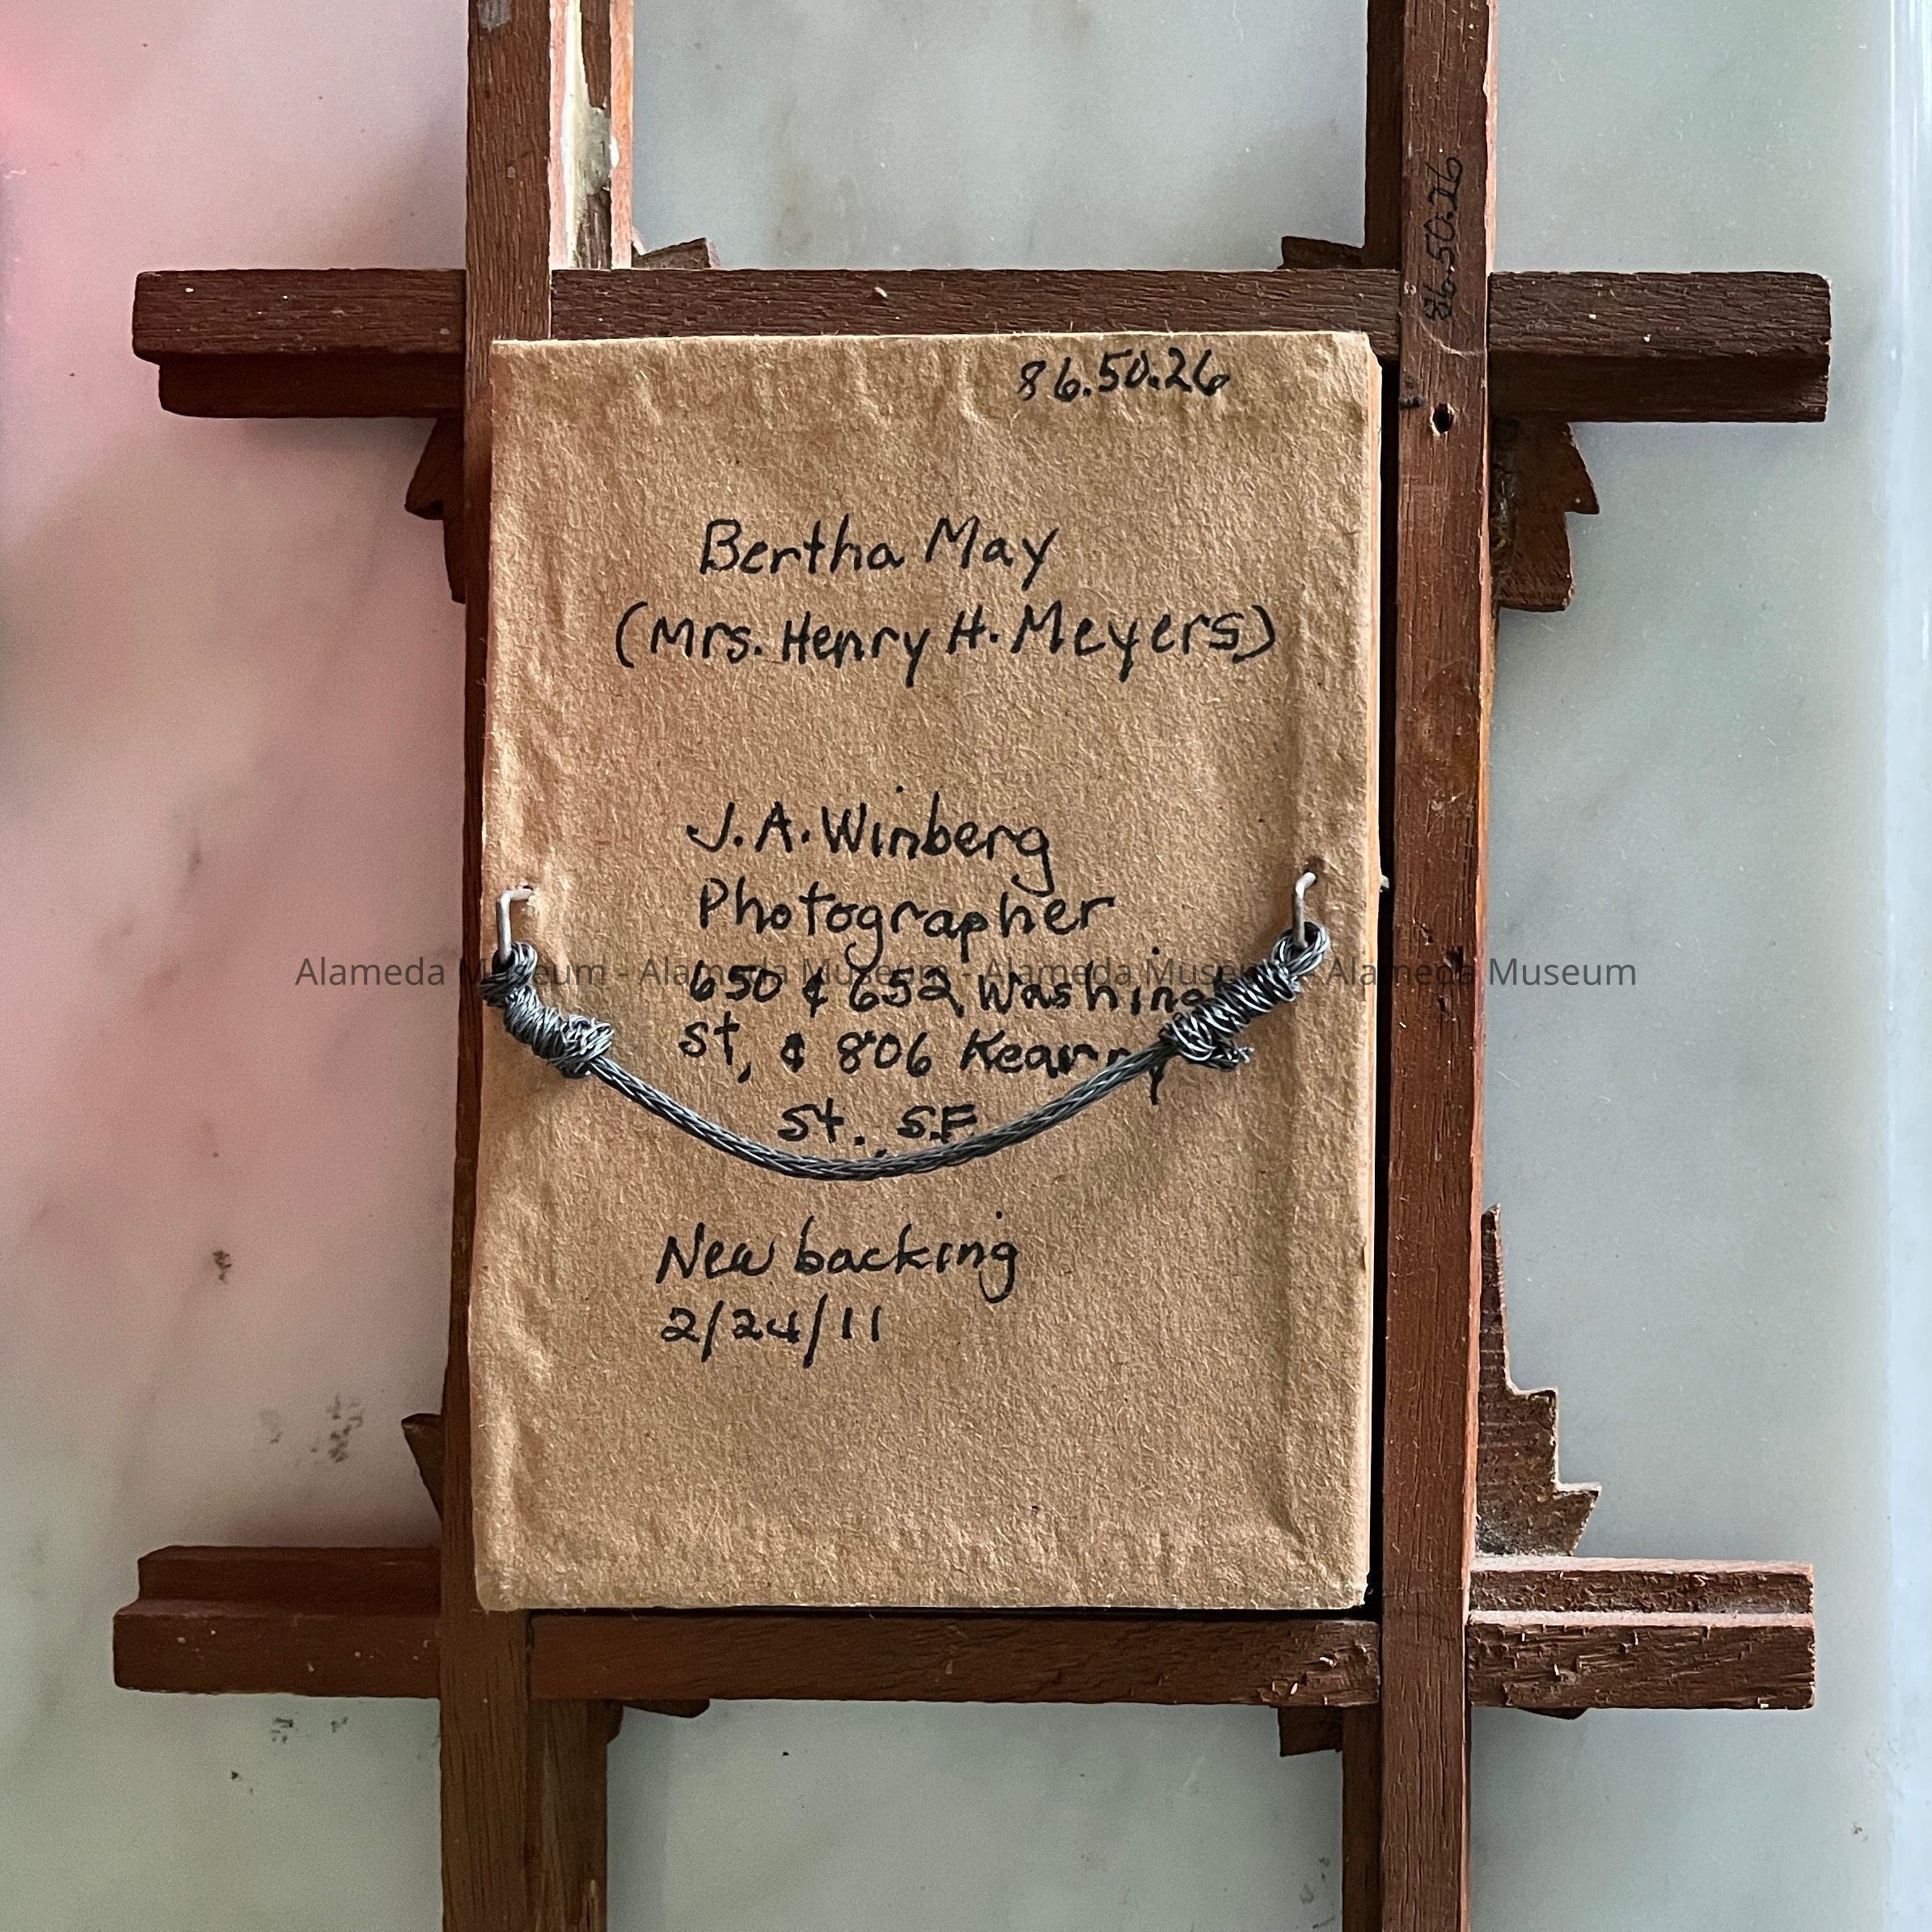 86.50.26
86.50.26
Bertha May
(Mrs. Henry H. Meyers)
J.A. Winberg
Photographer
Alameda Museum - Alameda Museum - Alameda Museum - Alameda Museum
650 & 652
st, & 806 Kearny
St. S.F
New backing
2/24/11